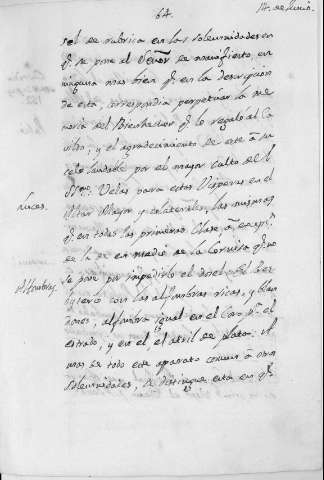 64.
14. de Junio.
sel de rubrica en las solemnidades en
q.e se pone el Señor de manifiesto, en
ninguna mas bien q.e en la descripcion
de esta, correspondia perpetuar la me
moria del Bienhechor q.e lo regalo al Ca
vildo, y el agradecimiento de este a su
celo laudable por el mayor culto de el
SS.mo Velas para estas Visperas en el
Altar Mayor y colaterales, las mismas
q.e en todas las primeras Clase, a excep.n
de la de en medio de la Cornisa q.e no
se pone por impedirlo el dosel. El Pres
biterio con las alfombras ricas, y blan
dones, alfombra igual en el Coro p.a el
estrado, y en el el atril de plata. A
mas de todo este aparato comun a otras
solemnidades, se distingue esta en q.e
Luces.
Alfombras.